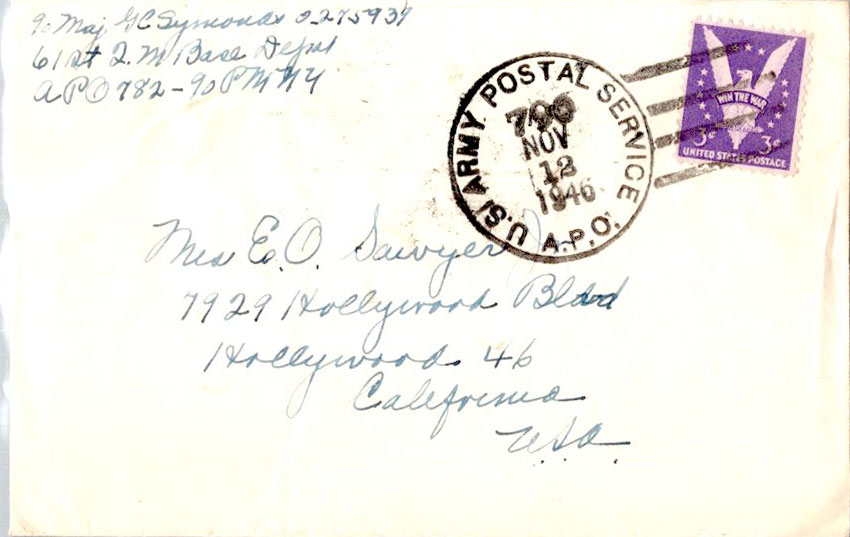 ℅ Maj GC Symonds 0275937
61st Q.M Base Depot
APO 782 - ℅ PM NY
U.S. ARMY POSTAL SERVICE
NOV
12
1946
A.P.O.
WIN THE WAR
3¢ 3¢
UNITED STATES POSTAGE
Mrs E.O. Sawyer Jr.
7929 Hollywood Blvd
Hollywood 46
California
USA